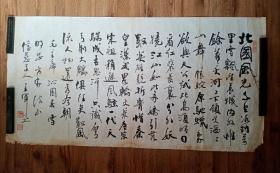 北國風光千里冰封萬
里雪飄望長城内外惟
餘莽莽大河上下頓失滔滔
山舞銀蛇原馳蠟象
欲與天公試比高須晴日
看紅裝素裹分外妖
嬈江山如此多嬌引無
數英雄競折腰惜秦
皇漢武略輸文采唐
宗宋祖稍遜風騷一代天
驕成吉思汗只識彎
弓射大雕俱往矣數風
流人物還看今朝
毛主席沁園春雪